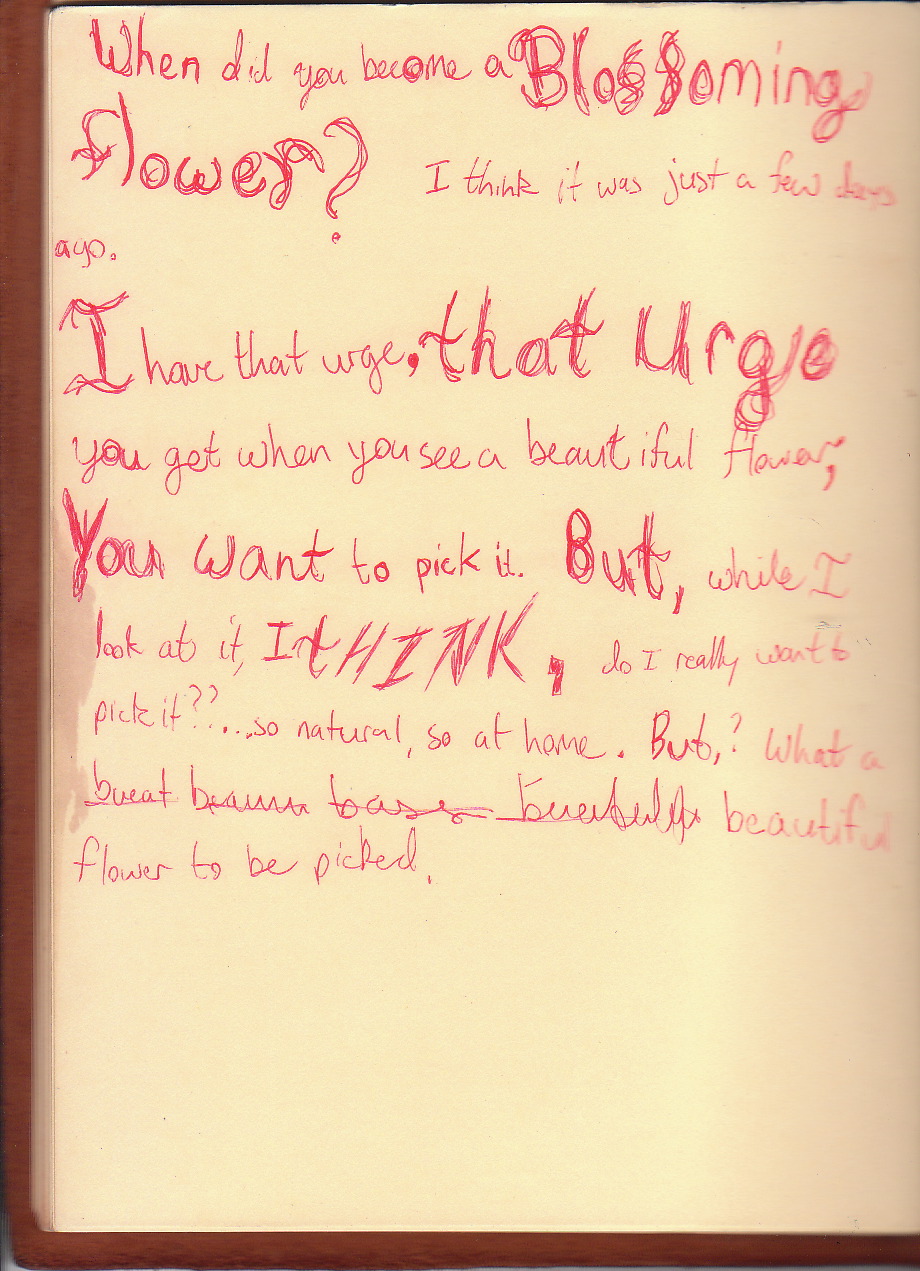 When did you become a Blossoming
flower? I think it was just a few days
ago.
I have that urge, that Urge
you get when you see a beautiful flower;
You want to pick it. But, while I
look at it, I tHINK, do I really want to
pick it??....so natural, so at home. But,? What a
beautiful
flower to be picked.